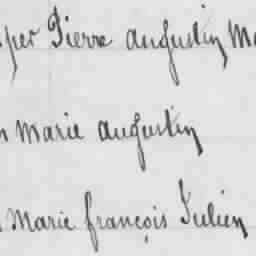 Pierre augustin
marie augustin
Marie françois Julien